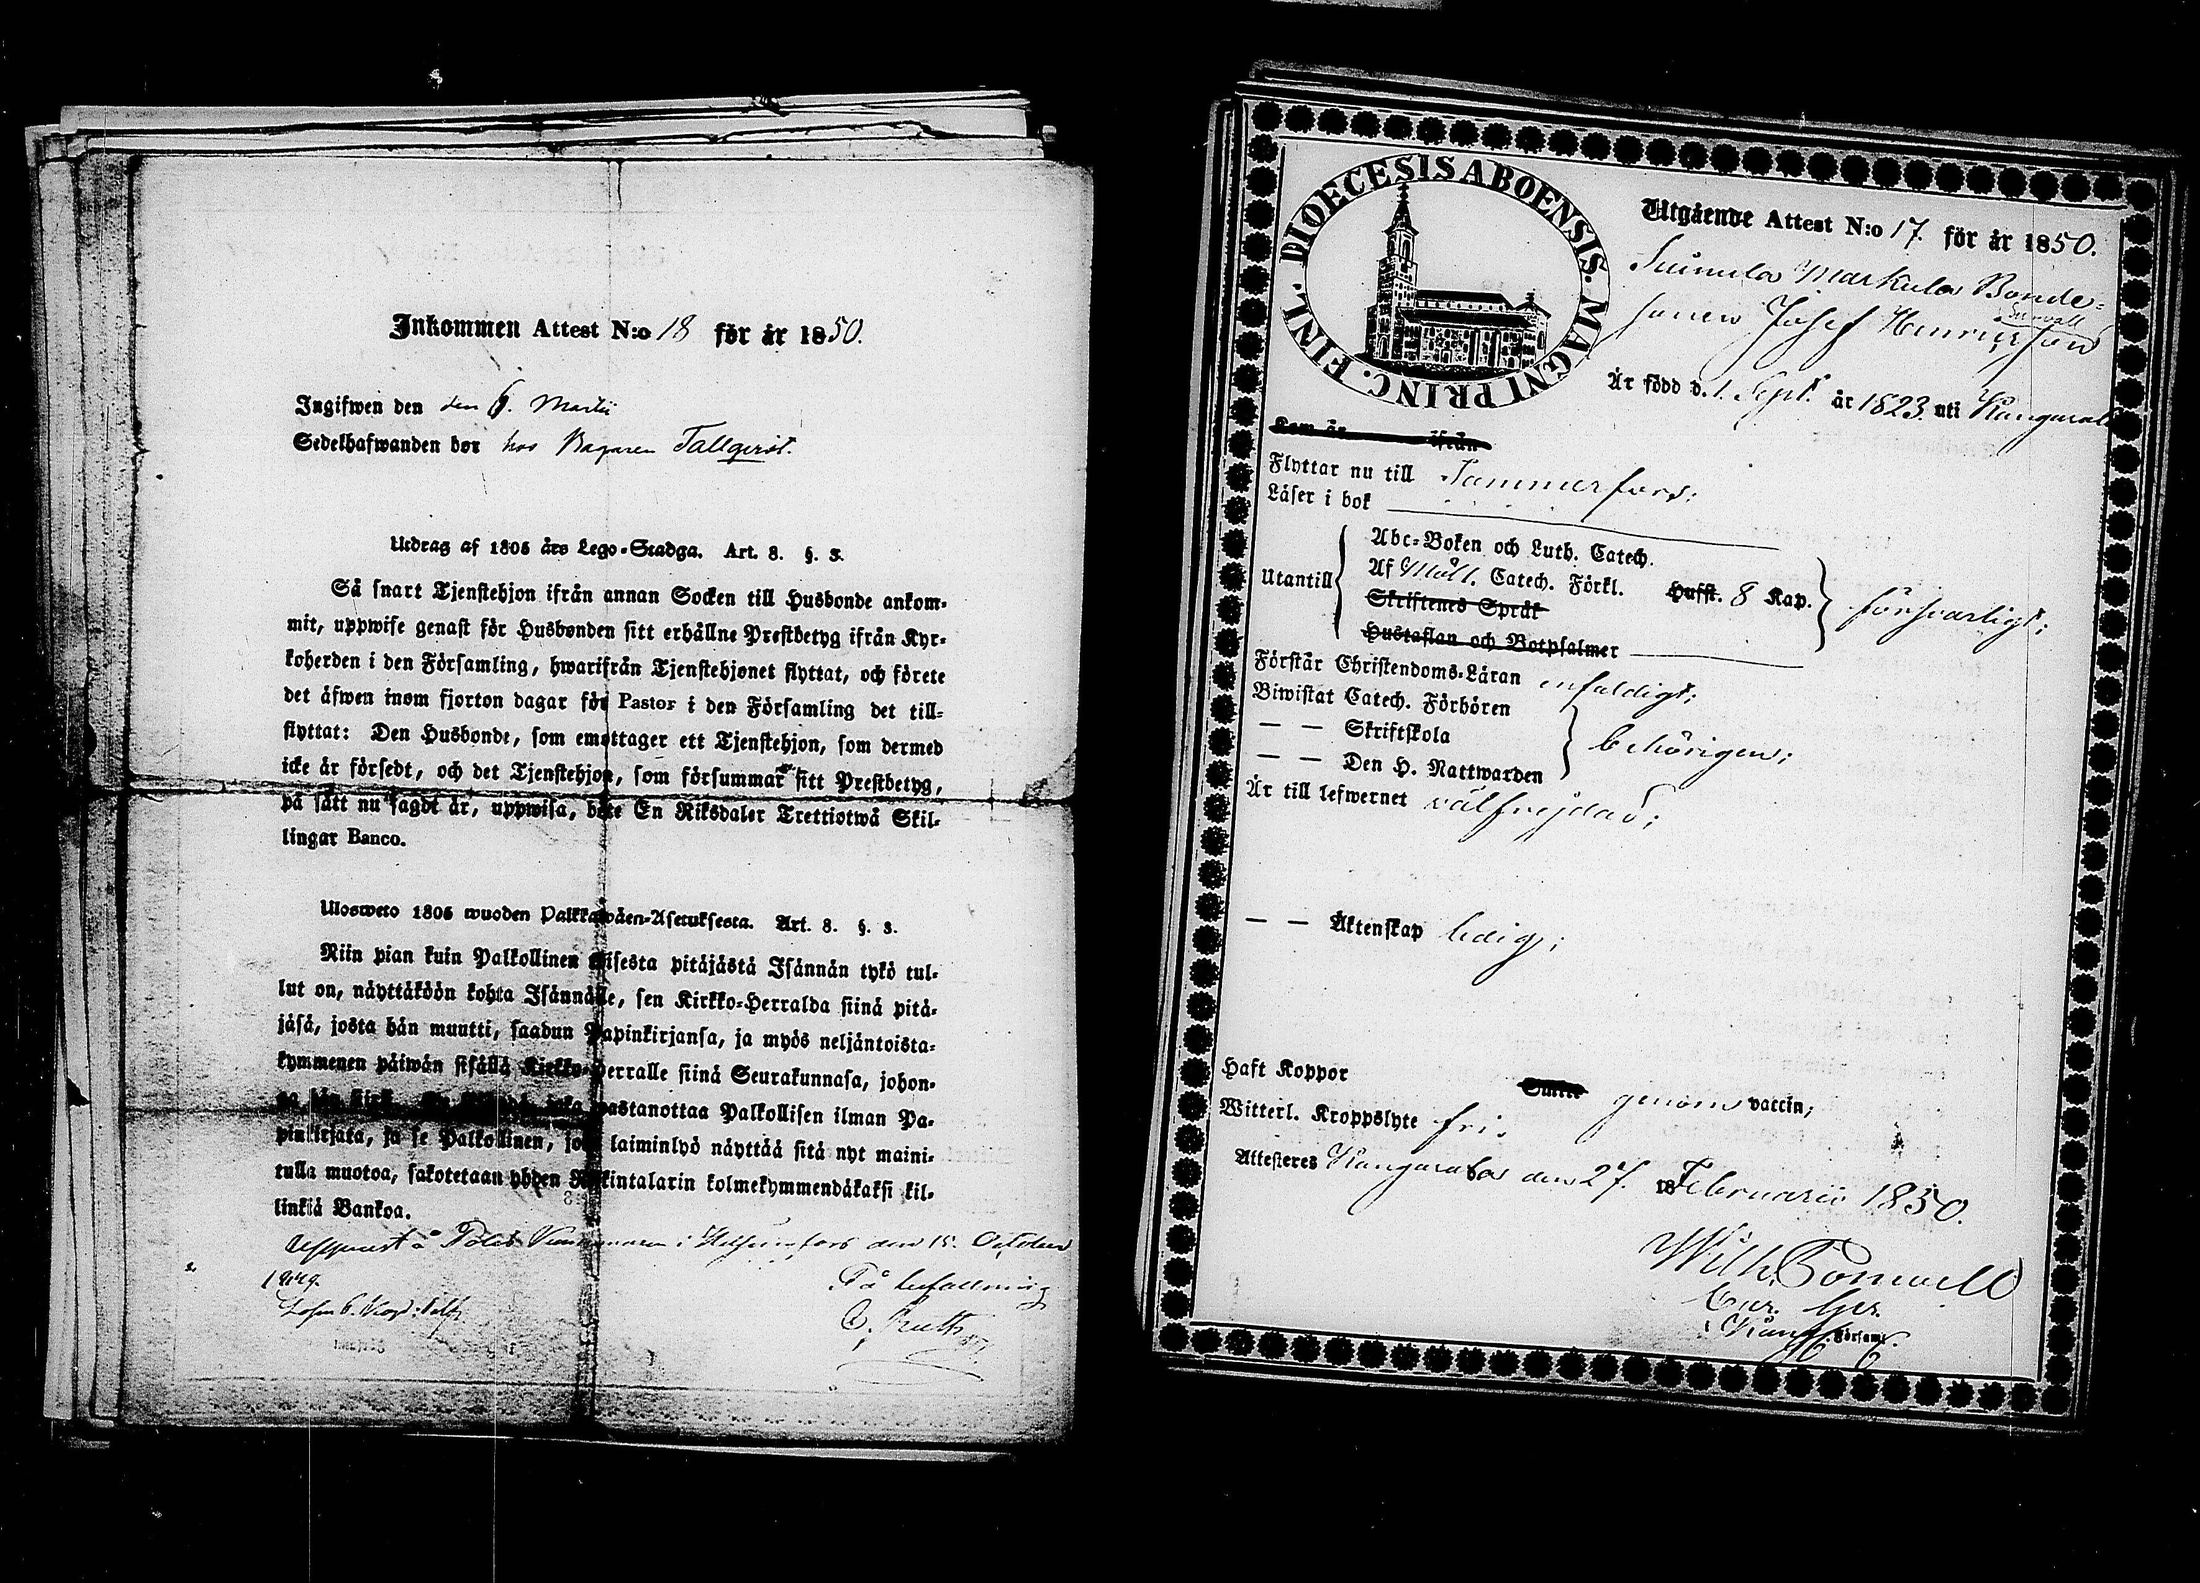 Inkommen Attest N:o 18 för år 1850.
Ingifwen den den 6. Martii
Sedelhafwanden bor hos Bagaren Tallqvist.
Utdrag af 1805 års Lego-Stadga. Art. 8. §. 3.
Så snart Tjenstehjon ifrån annan Socken till Husbonde ankom-
mit, uppwise genast för Husbonden sitt erhållne Prestbetyg ifrån Kyr-
koherden i den Församling, hwarifrån Tjenstehjonet flyttat, och förete
det äfwen inom fjorton dagar för Pastor i den Församling det till-
flyttat: Den Husbonde, som emottager ett Tjenstehjon, som dermed
icke är försedt, och det Tjenstehjon, som försummar sitt Prestbetyg,
på sätt nu sagdt är, uppwisa, böte En Riksdaler Trettiotwå Skil-
lingar Banco.
Ulosweto 1805 wuoden Palkkawäen-Asetuksesta. Art. 8. §. 3.
Niin pian kuin Palkollinen toisesta pitäjästä Isännän tykö tul-
lut on, näyttäköön kohta Isännälle, sen Kirkko-Herralda siinä pitä-
jäsä, josta hän muutti, saadun Papinkirjansa, ja myös neljäntoista-
kymmenen päiwän sisällä Kirkko-Herralle siinä Seurakunnasa, johon-
wastanottaa Palkollisen ilman Pa-
pinkirjata, ja se Palkollinen, joka laiminlyö näyttää sitä nyt maini-
tulla muotoa, sakotetaan yhden Riikintalarin kolmekymmendäkaksi kil-
linkiä Bankoa.
Uppvist å Polis Kammaren i Helsingfors den 15. October
1849.
På befallning
DIOECESIS ABOENSIS. MAGNI PRINC. FINL.
Utgående Attest N:o 17. för år 1850.
Markula Bonde-
sonen Josef Henricsson
Är född d. 1. Sept. år 1823 uti Kangasala
Kom år ifrån
Flyttar nu till Tammerfors;
Läser i bok
Utantill
Abc-Boken och Luth. Catech.
Af Möll. Catech. Förkl. Husst. 8 Kap. försvarligt;
Skriftenes Språk
Hustaflan och Botpsalmer
Förstår Christendoms-Läran enfaldigt;
Biwistat Catech. Förhören
— — Skriftskola behörigen;
— — Den H. Nattwarden
Är till lefwernet välfrejdad;
— — Äktenskap ledig;
Haft Koppor genom vaccin;
Witterl. Kroppslyte fri.
Attesteres Kangasala den 27. 18 Februarii 1850.
Wilh.
Församl.